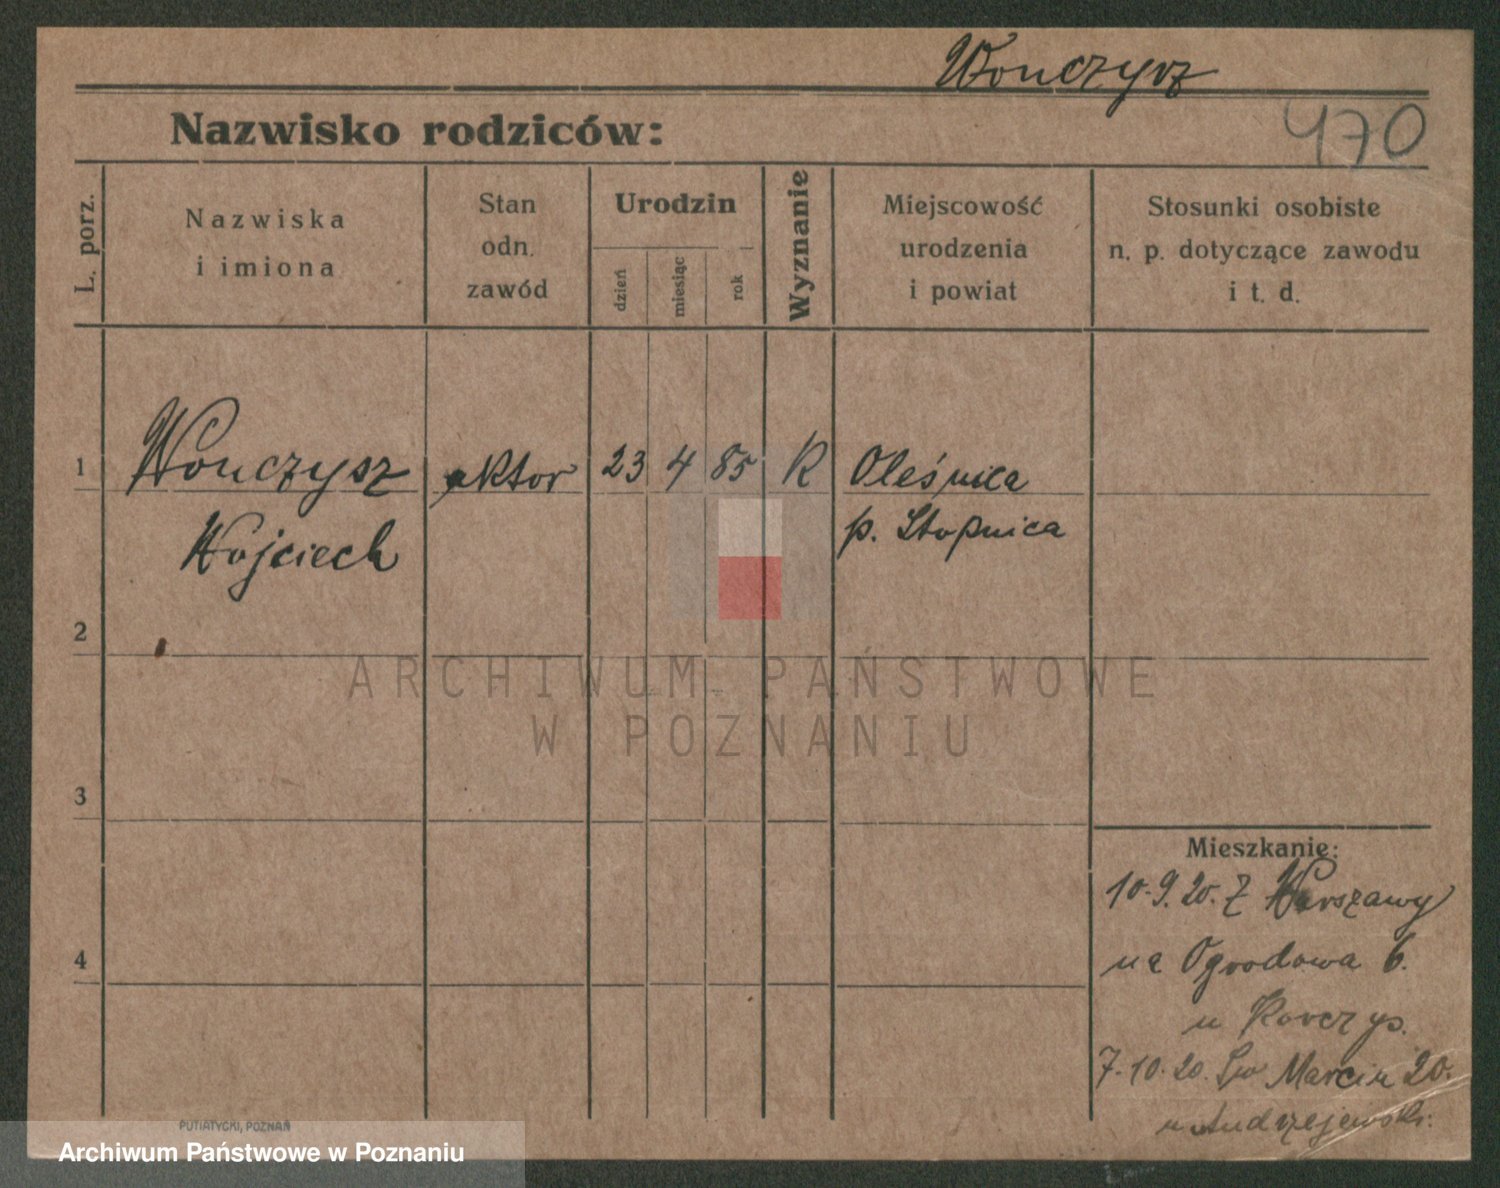 Wonczysz
470
Nazwisko rodziców:
L. porz.
Nazwiska
i imiona
Stan
odn.
zawód
Urodzin
dzień
miesiąc
rok
Wyznanie
Miejscowość
urodzenia
i powiat
Stosunki osobiste
n. p. dotyczące zawodu
i t. d.
1 Wonczysz aktor 23 4 85 R Oleśnica
Wojciech p. Stopnica
2
ARCHIWUM PAŃSTWOWE
W POZNANIU
3
Mieszkanie:
10.9.20. Z Warszawy
na Ogrodowa 6.
4
u Korczys.
7.10.20. Św Marcin 20.
u Andrzejewski.
PUTIATYCKI, POZNAŃ
Archiwum Państwowe w Poznaniu